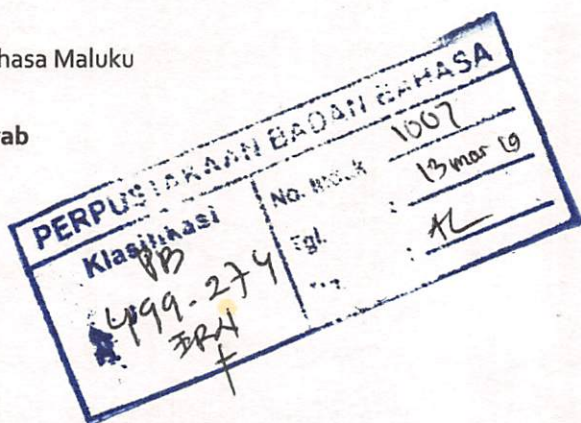 hasa Maluku
ab
PERPUSTAKAAN BADAN BAHASA
Klasifikasi
PB
499.274
IRN
t
No. Induk : 1007
Tgl. : 13 mar 19
: AL